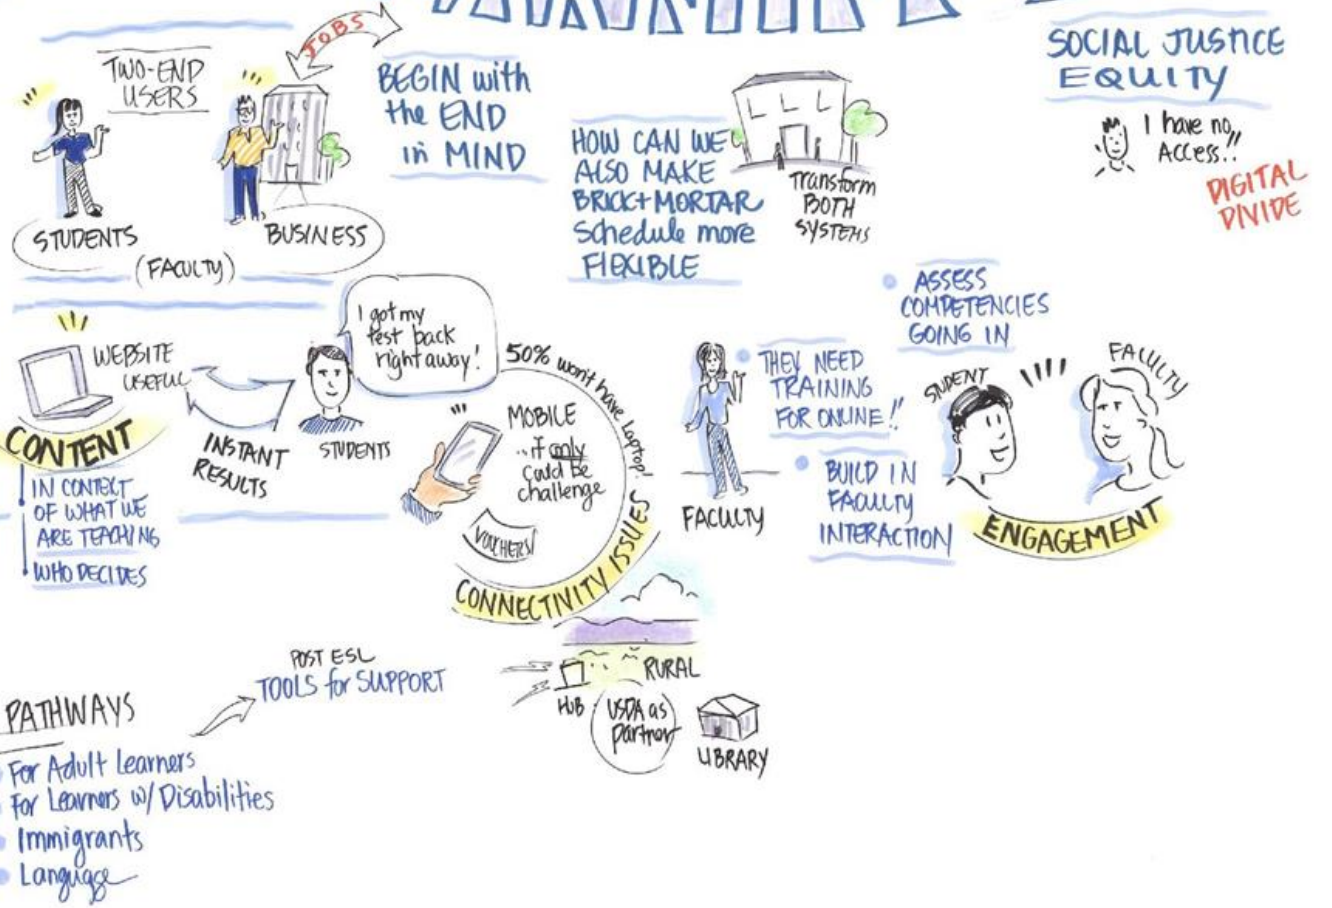 JOBS
TWO-END
USERS
STUDENTS
BUSINESS
(FACULTY)
BEGIN with
the END
in MIND
HOW CAN WE
ALSO MAKE
BRICK+MORTAR
Schedule more
FLEXIBLE
Transform
BOTH
SYSTEMS
SOCIAL JUSTICE
EQUITY
I have no
ACCESS!!
DIGITAL
DIVIDE
WEBSITE
USEFUL
CONTENT
IN CONTEXT
OF WHAT WE
ARE TEACHING
WHO DECIDES
INSTANT
RESULTS
I got my
test back
right away!
STUDENTS
50% won't have laptop!
MOBILE
...if only
could be
challenge
VOUCHERS!
CONNECTIVITY ISSUES
FACULTY
ASSESS
COMPETENCIES
GOING IN
THEY NEED
TRAINING
FOR ONLINE!!
BUILD IN
FACULTY
INTERACTION
STUDENT
FACULTY
ENGAGEMENT
RURAL
HUB
USDA as
partner
LIBRARY
POST ESL
TOOLS for SUPPORT
PATHWAYS
For Adult Learners
For Learners w/ Disabilities
Immigrants
Language